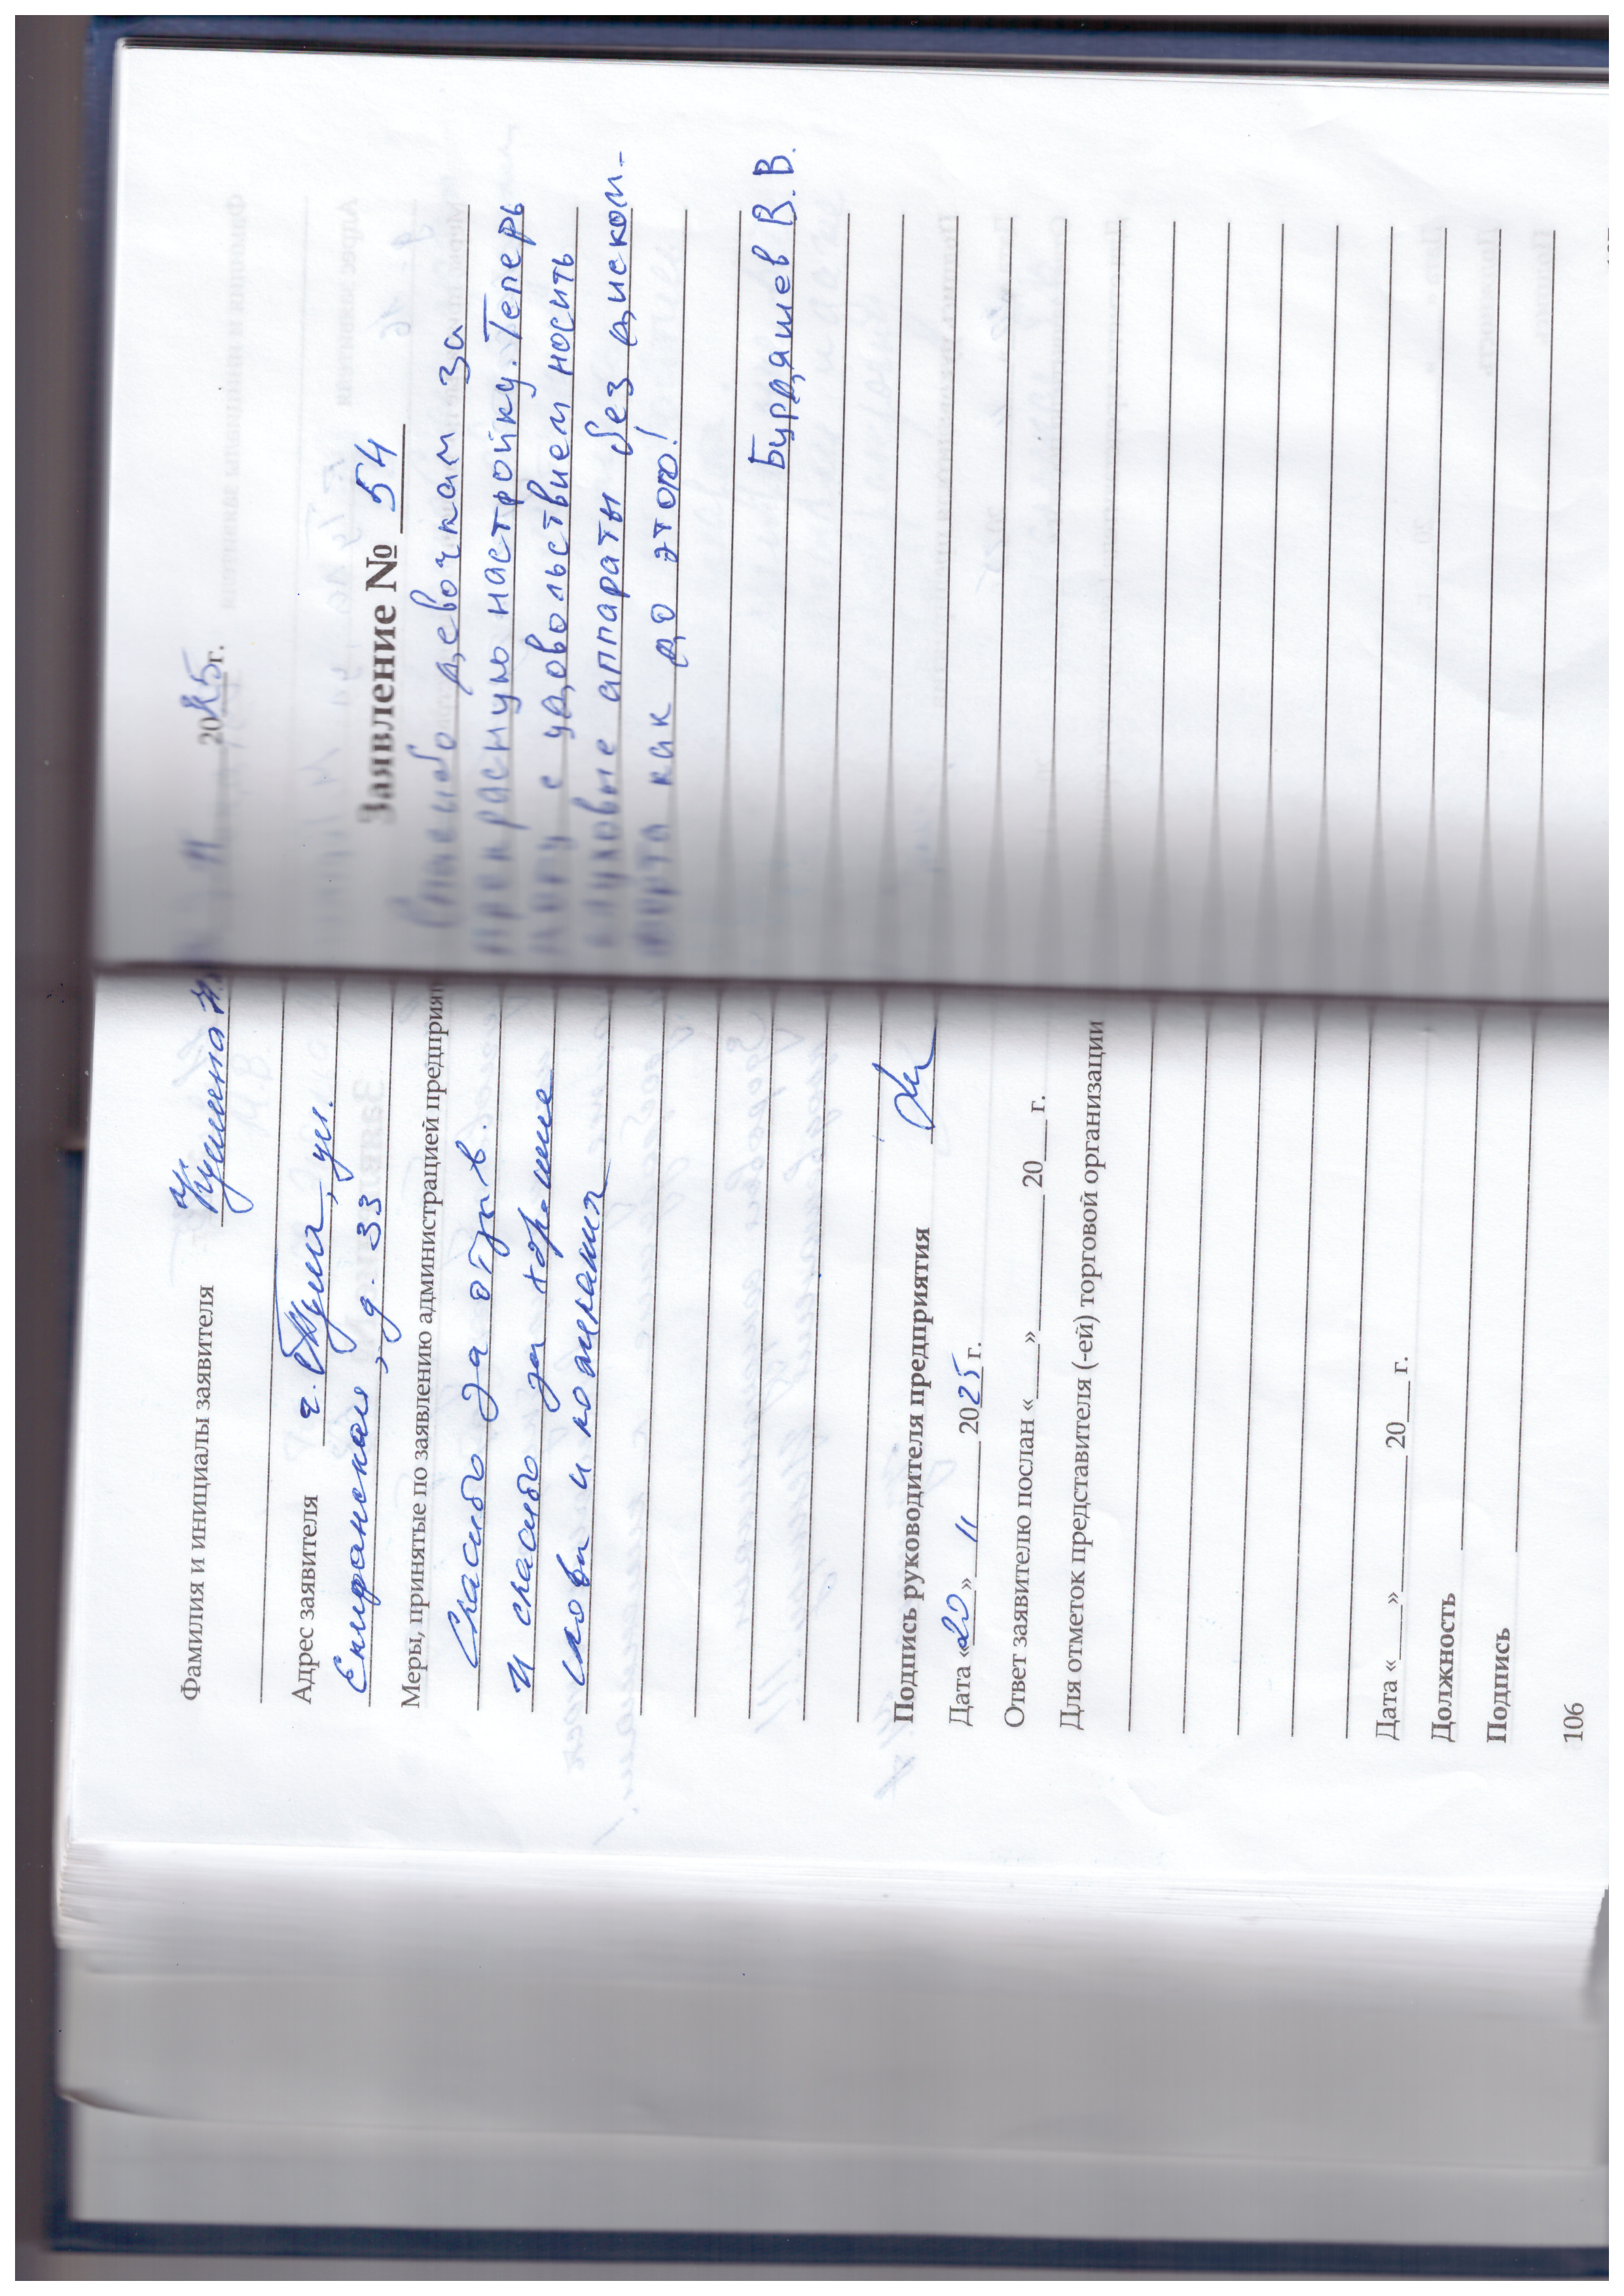 Фамилия и инициалы заявителя
Адрес заявителя г. Тула, ул.
Епифанская, д. 33
Меры, принятые по заявлению администрацией предприят
Спасибо за отзыв.
И спасибо за хорошие
слова и пожелания
Подпись руководителя предприятия
Дата «20» 11 2025 г.
Ответ заявителю послан «___» 20___ г.
Для отметок представителя (-ей) торговой организации
Дата «___» 20___ г.
Должность
Подпись
106
2025 г.
Заявление № 54
Спасибо девочкам за
прекрасную настройку. Теперь
могу с удовольствием носить
слуховые аппараты без диском-
форта как до этого!
Бурдяшев В.В.